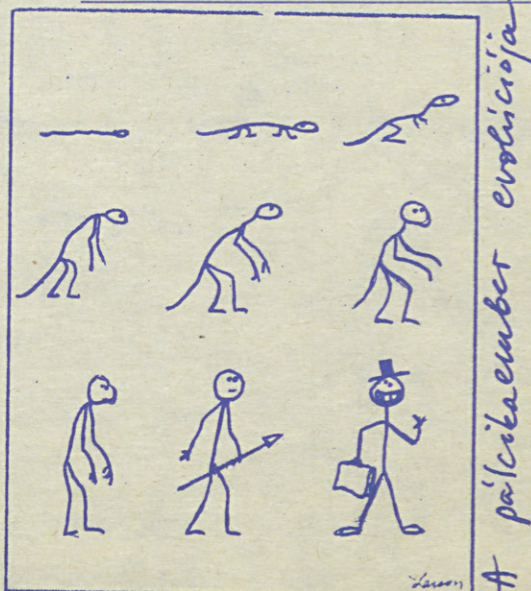 A pálcikaember evolúciója
Larson